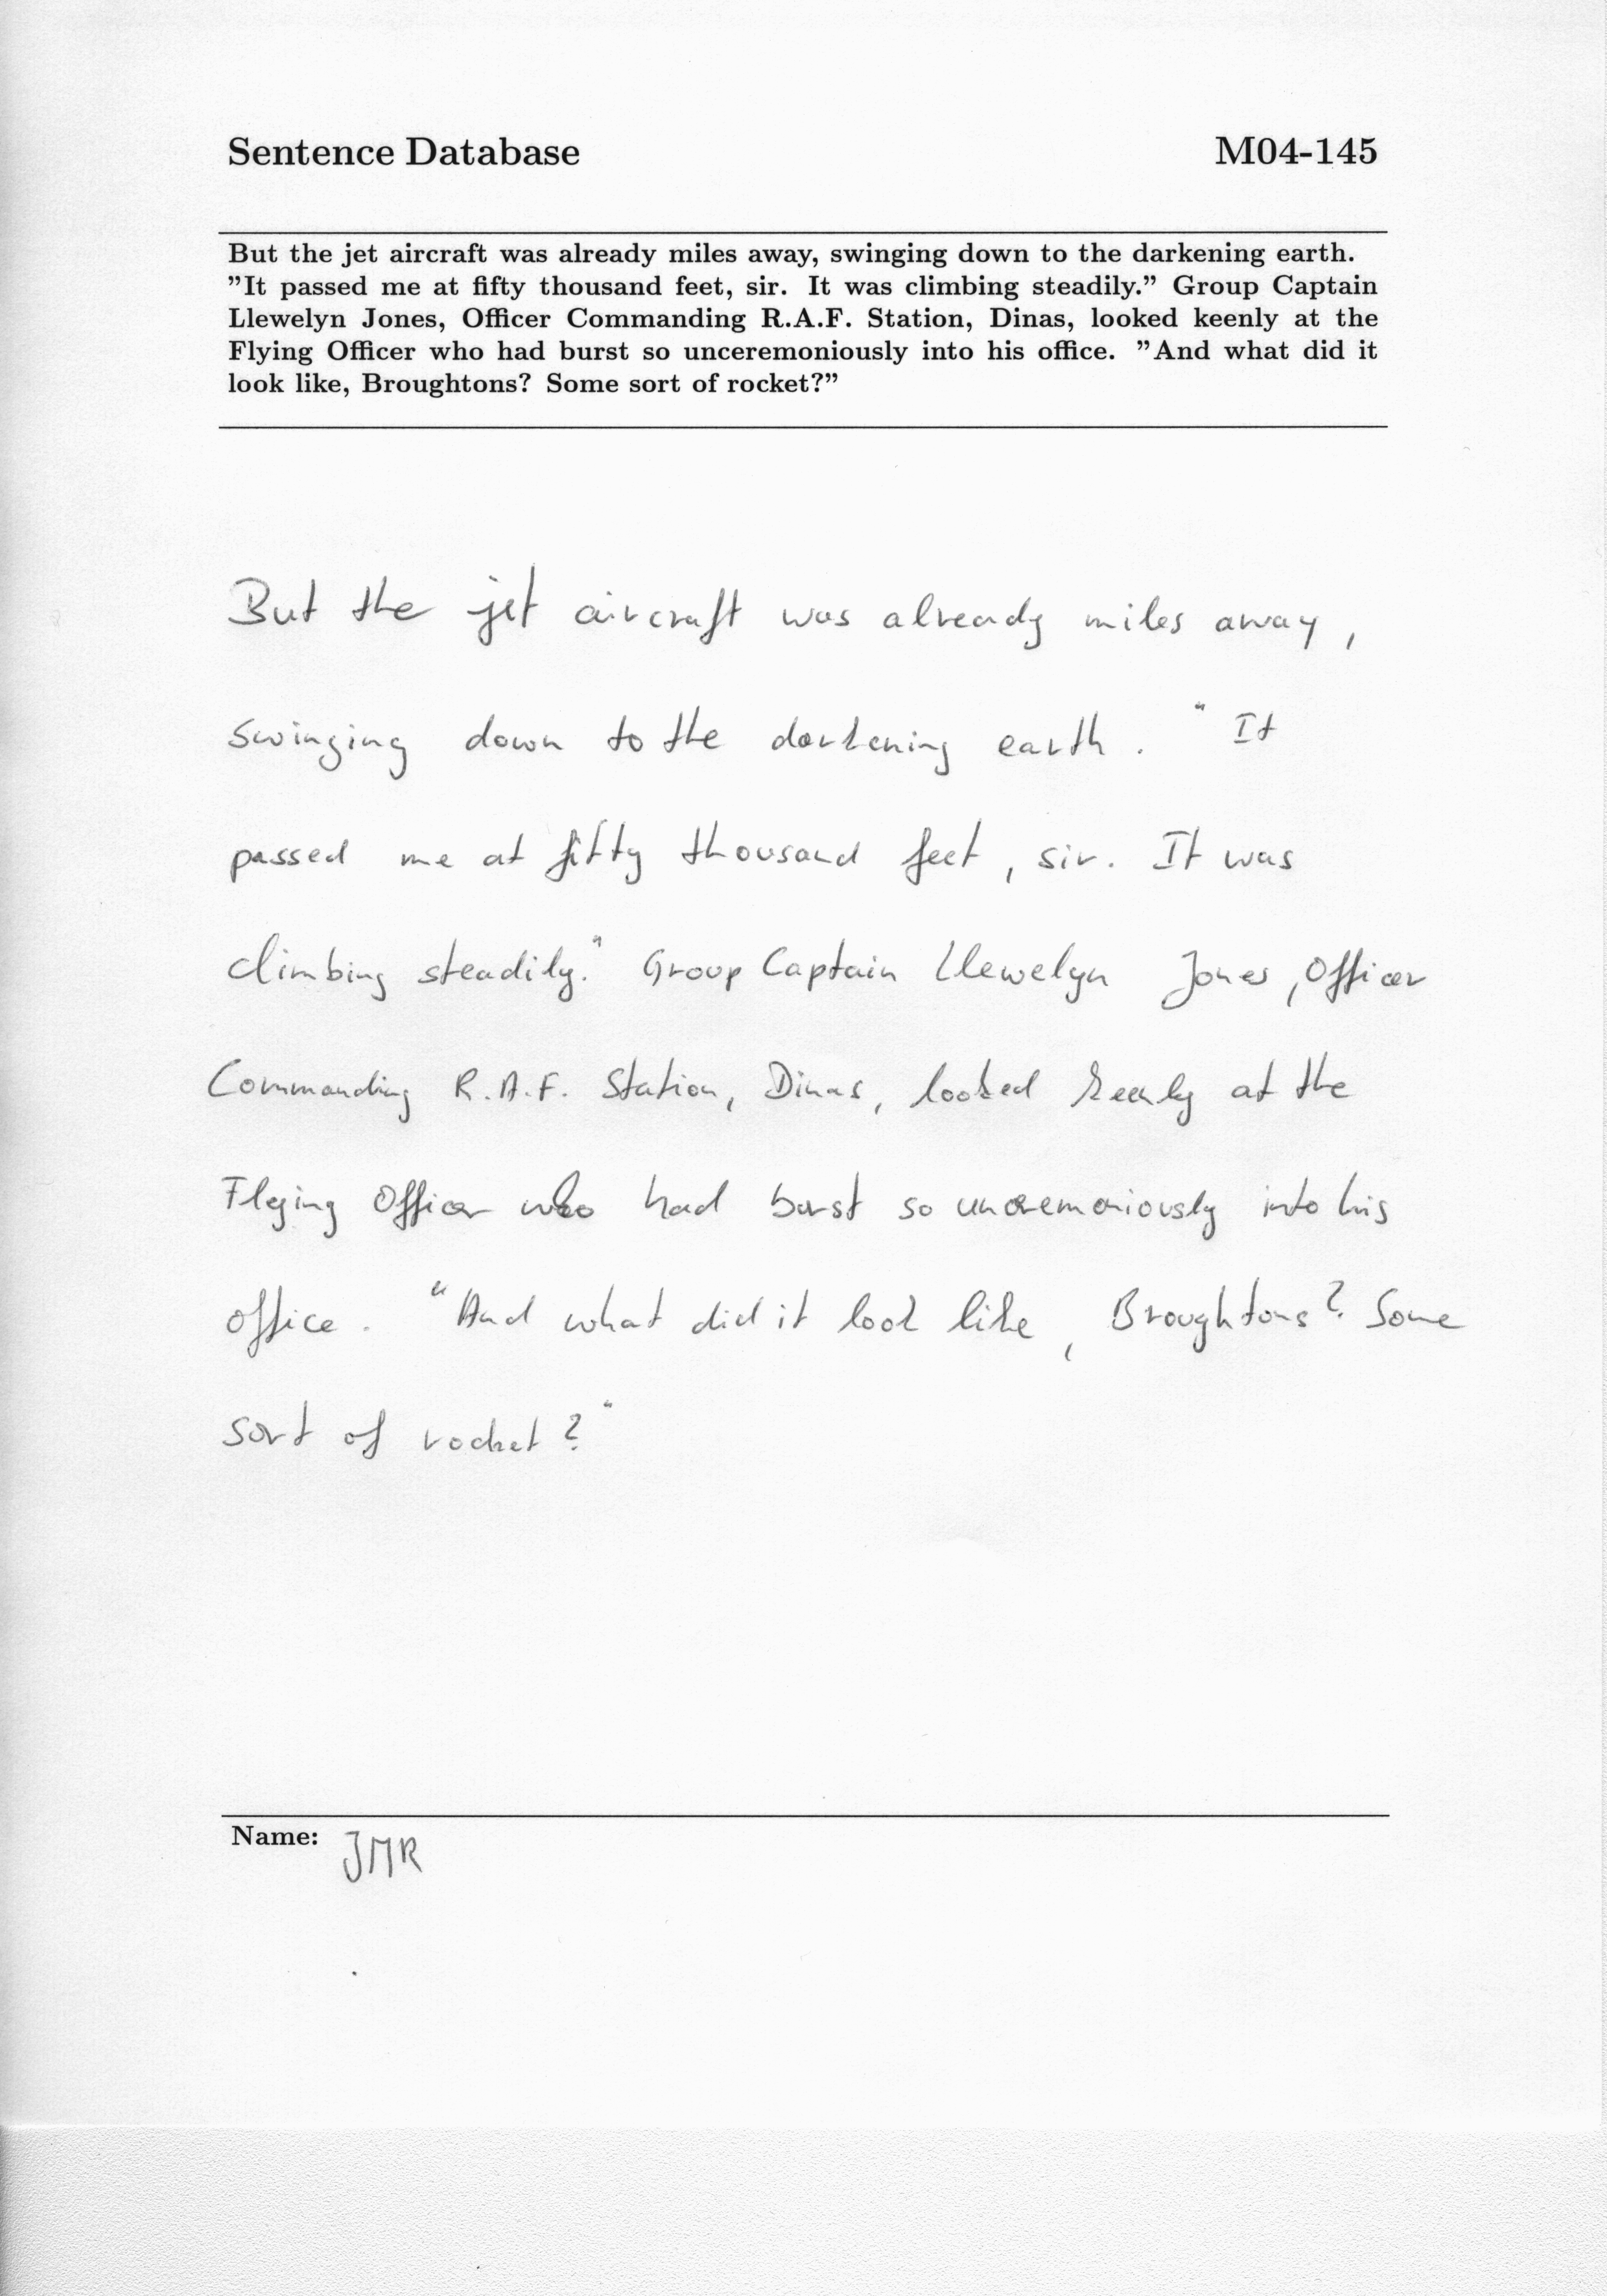 Sentence Database M04-145
But the jet aircraft was already miles away, swinging down to the darkening earth.
”It passed me at fifty thousand feet, sir. It was climbing steadily.” Group Captain
Llewelyn Jones, Officer Commanding R.A.F. Station, Dinas, looked keenly at the
Flying Officer who had burst so unceremoniously into his office. ”And what did it
look like, Broughtons? Some sort of rocket?”
But the jet aircraft was already miles away,
swinging down to the darkening earth. "It
passed me at fifty thousand feet, sir. It was
climbing steadily." Group Captain Llewelyn Jones, Officer
Commanding R.A.F. Station, Dinas, looked keenly at the
Flying Officer who had burst so unceremoniously into his
office. "And what did it look like, Broughtons? Some
sort of rocket?"
Name: JMR